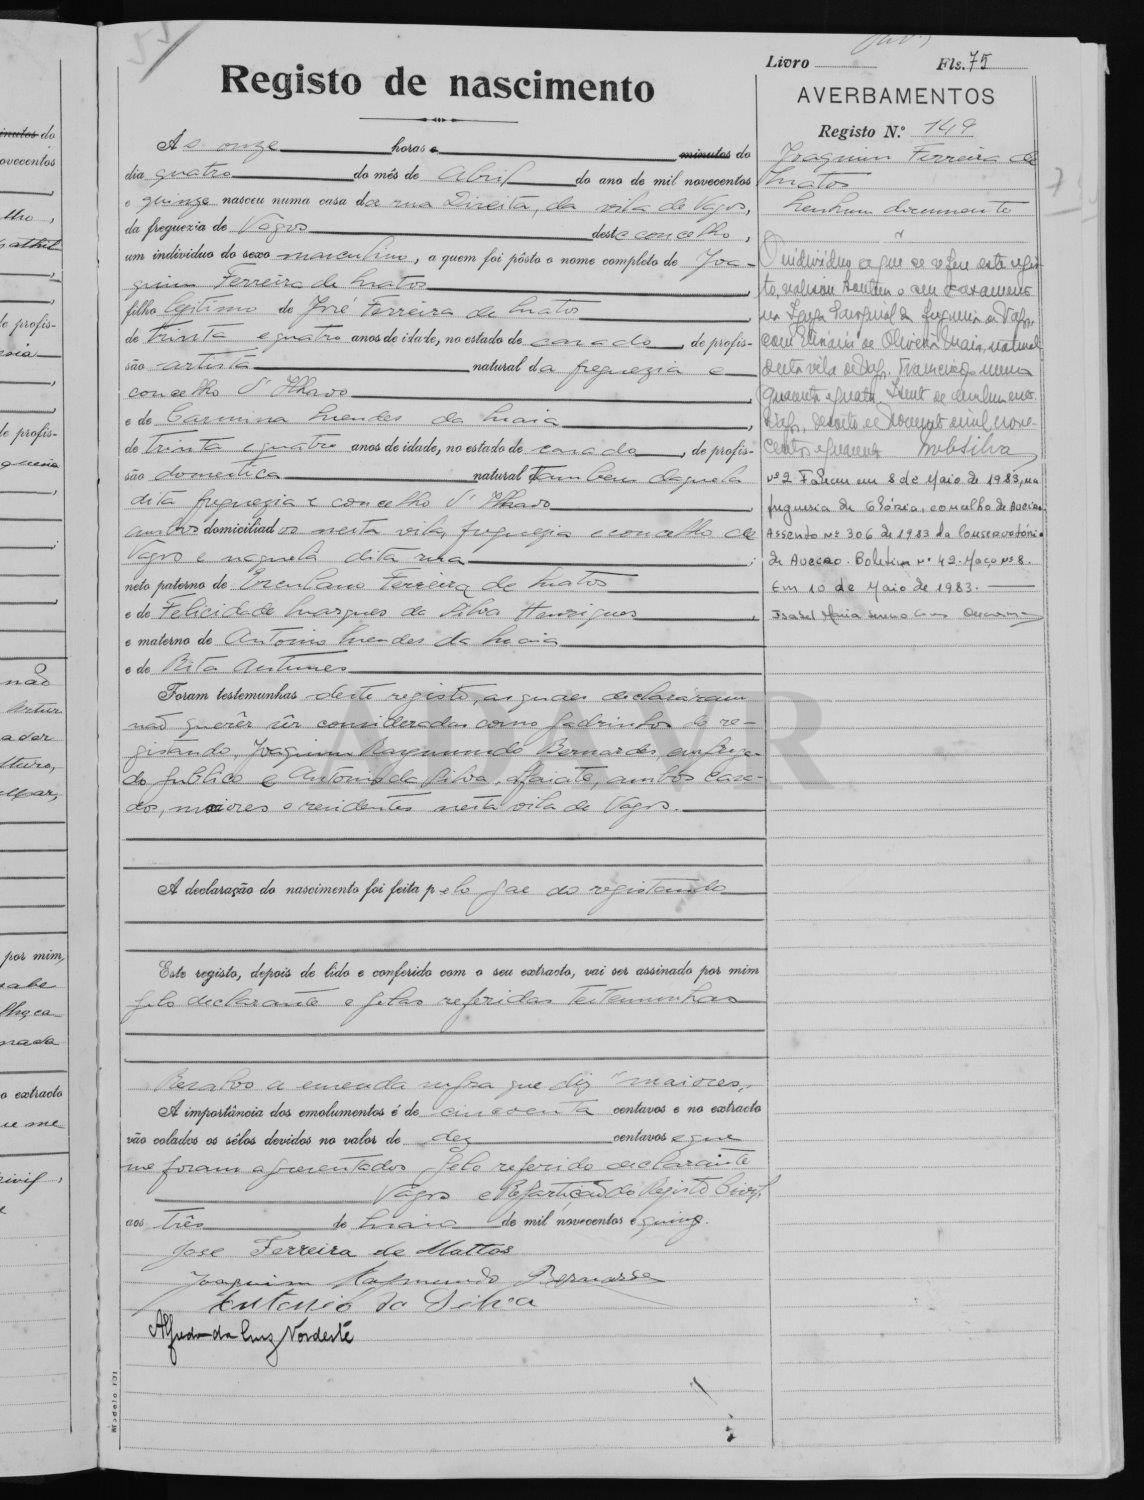 Livro Fls. 75
Registo de nascimento
AVERBAMENTOS
Registo N.º 149
Ás onze horas e minutos do
dia quatro do mês de Abril do ano de mil novecentos
e quinze nasceu numa casa da rua Direita, da vila de Vagos,
da freguezia de Vagos deste concelho,
um individuo do sexo masculino, a quem foi pôsto o nome completo de Joa-
quim Ferreira de Matos
filho legitimo de José Ferreira de Matos
de trinta e quatro anos de idade, no estado de casado, de profis-
são artista natural da freguezia e
concelho d'Ilhavo
e de Carmina Mendes da Maia
de trinta e quatro anos de idade, no estado de casada, de profis-
são domestica natural tambem daquela
dita freguezia e concelho d'Ilhavo
ambos domiciliados nesta vila, freguezia e concelho de
Vagos e naquela dita rua;
neto paterno de Herculano Ferreira de Matos
e de Felicidade Marques da Silva Henriques,
e materno de Antonio Mendes da Maia
e de Rita Antunes
Foram testemunhas deste registo, as quaes declararam
não querêr sêr considerados como padrinhos do re-
gistando, Joaquim Raymundo Bernardes, emprega-
do publico e Antonio da Silva, alfaiate, ambos casa-
dos, maiores e residentes nesta vila de Vagos.
A declaração do nascimento foi feita pelo pae do registando
Este registo, depois de lido e conferido com o seu extracto, vai ser assinado por mim
pelo declarante e pelas referidas testemunhas
Resalvo a emenda supra que diz "maiores"
A importância dos emolumentos é de cincoenta centavos e no extracto
vão colados os sêlos devidos no valor de dez centavos e que
me foram apresentados pelo referido declarante
Vagos e Repartição do Registo Civil,
aos três de Maio de mil novecentos e quinze.
José Ferreira de Mattos
Joaquim Raymundo Bernardes
Antonio da Silva
Alfredo da Luz Nordeste
Modelo 101
Joaquim Ferreira de
Matos
Nenhum documento
O individuo a que se refere este regis-
to, realisou hontem o seu casamento
na Igreja Paroquial da freguesia de Vagos
com de Oliveira Maia, natural
desta vila de Vagos.
quarenta e quatro
Vagos, de Dezembro mil nove-
centos e quarenta
Nº 2 Faleceu em 8 de Maio de 1983, na
freguesia da Glória, concelho de Aveiro
Assento nº 306 de 1983 da Conservatória
de Aveiro. Boletim nº 42. Maço nº 8.
Em 10 de Maio de 1983.
Isabel Maria
ADAVR